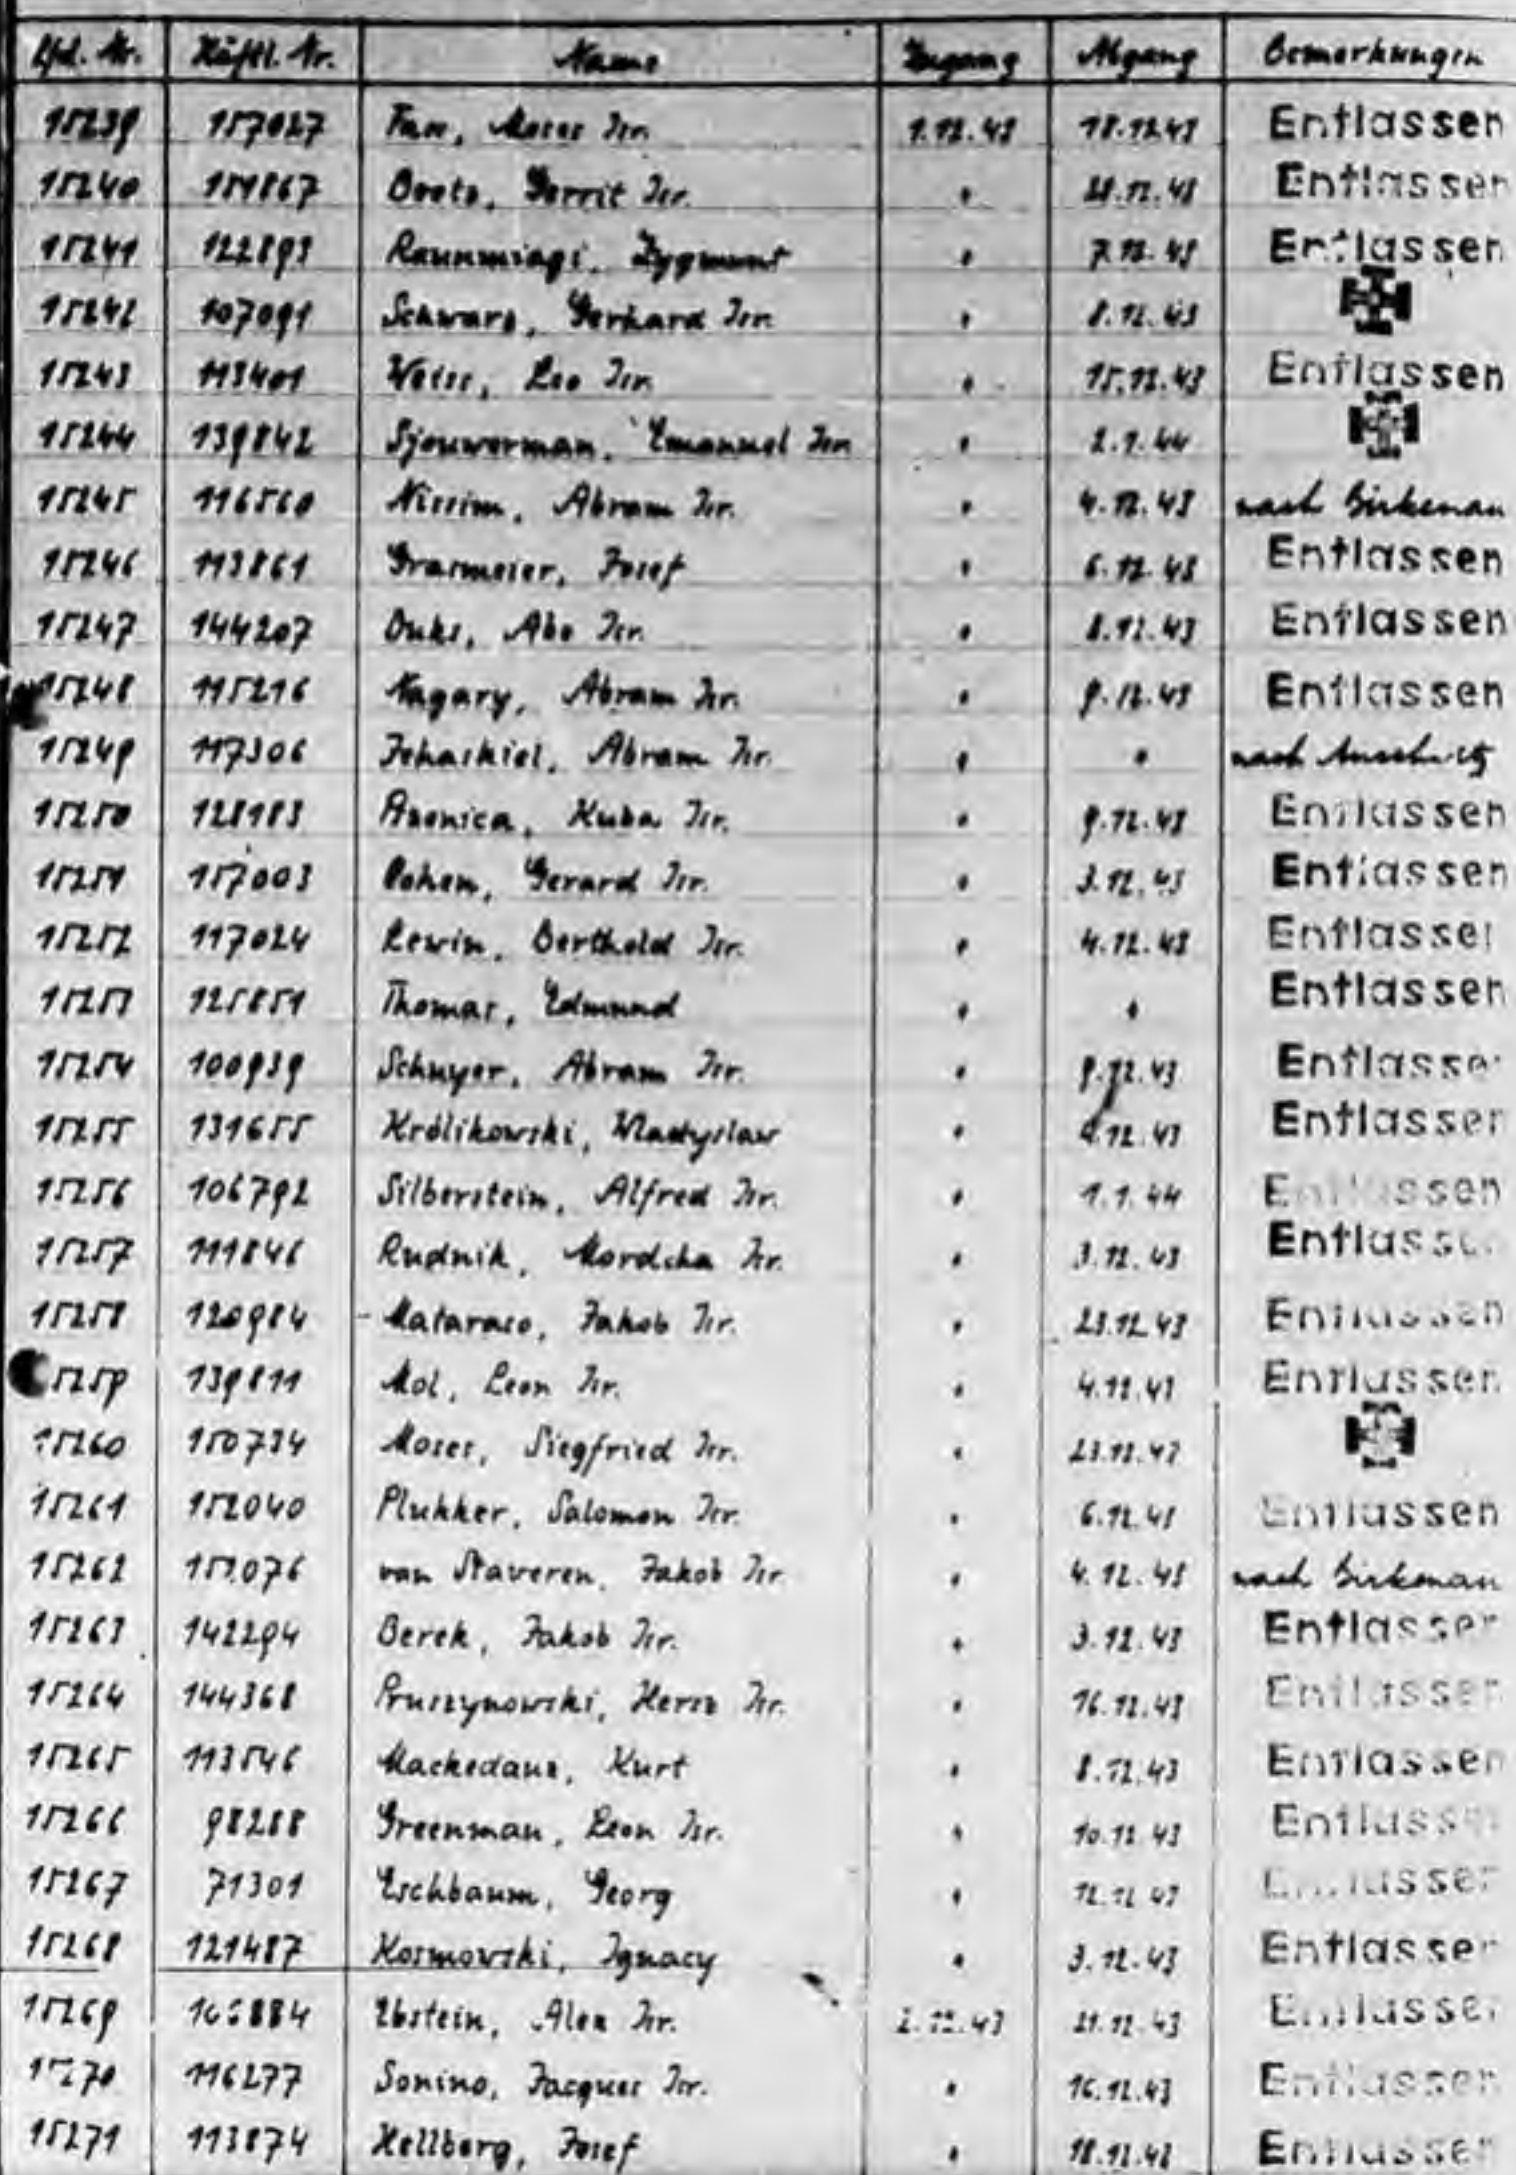 Lfd. Nr. Häftl. Nr. Name Zugang Abgang Bemerkungen
15239 157027 Moses Isr. 1.12.43 18.12.43 Entlassen
15240 151867 Gerrit Isr. " 28.12.43 Entlassen
15241 122893 Zygmunt " 7.12.43 Entlassen
15242 107091 Schwarz, Gerhard Isr. " 8.12.43
15243 113401 Weiss, Leo Isr. " 15.12.43 Entlassen
15244 139842 Sjouwerman, Emanuel Isr. " 2.1.44
15245 116560 Nissim, Abram Isr. " 4.12.43 nach Birkenau
15246 113861 Grasmeier, Josef " 6.12.43 Entlassen
15247 144207 Duks, Abo Isr. " 8.12.43 Entlassen
15248 115216 Nagary, Abram Isr. " 9.12.43 Entlassen
15249 117306 Jehaskiel, Abram Isr. " " nach Auschwitz
15250 128183 Kuba Isr. " 9.12.43 Entlassen
15251 157003 Cohen, Gerard Isr. " 3.12.43 Entlassen
15252 117024 Lewin, Berthold Isr. " 4.12.43 Entlassen
15253 125851 Thomas, Edmund " " Entlassen
15254 100939 Schuyer, Abram Isr. " 9.12.43 Entlassen
15255 131655 Królikowski, Wladyslaw " 4.12.43 Entlassen
15256 106792 Silberstein, Alfred Isr. " 1.1.44 Entlassen
15257 111846 Rudnik, Mordcha Isr. " 3.12.43 Entlassen
15258 120984 Mataraso, Jakob Isr. " 23.12.43 Entlassen
15259 139811 Mol, Leon Isr. " 4.12.43 Entlassen
15260 150734 Moses, Siegfried Isr. " 23.12.43
15261 152040 Plukker, Salomon Isr. " 6.12.43 Entlassen
15262 152076 van Staveren, Jakob Isr. " 4.12.43 nach Birkenau
15263 142294 Berek, Jakob Isr. " 3.12.43 Entlassen
15264 144368 Pruszynowski, Hersz Isr. " 16.12.43 Entlassen
15265 113546 Mackedanz, Kurt " 8.12.43 Entlassen
15266 98288 Greenman, Leon Isr. " 10.12.43 Entlassen
15267 71301 Eschbaum, Georg " 12.12.43 Entlassen
15268 121487 Kosmowski, Ignacy " 3.12.43 Entlassen
15269 Ebstein, Alex Isr. 2.12.43 21.12.43 Entlassen
15270 116277 Sonino, Jacques Isr. " 16.12.43 Entlassen
15271 113874 Hellberg, Josef " 18.12.43 Entlassen